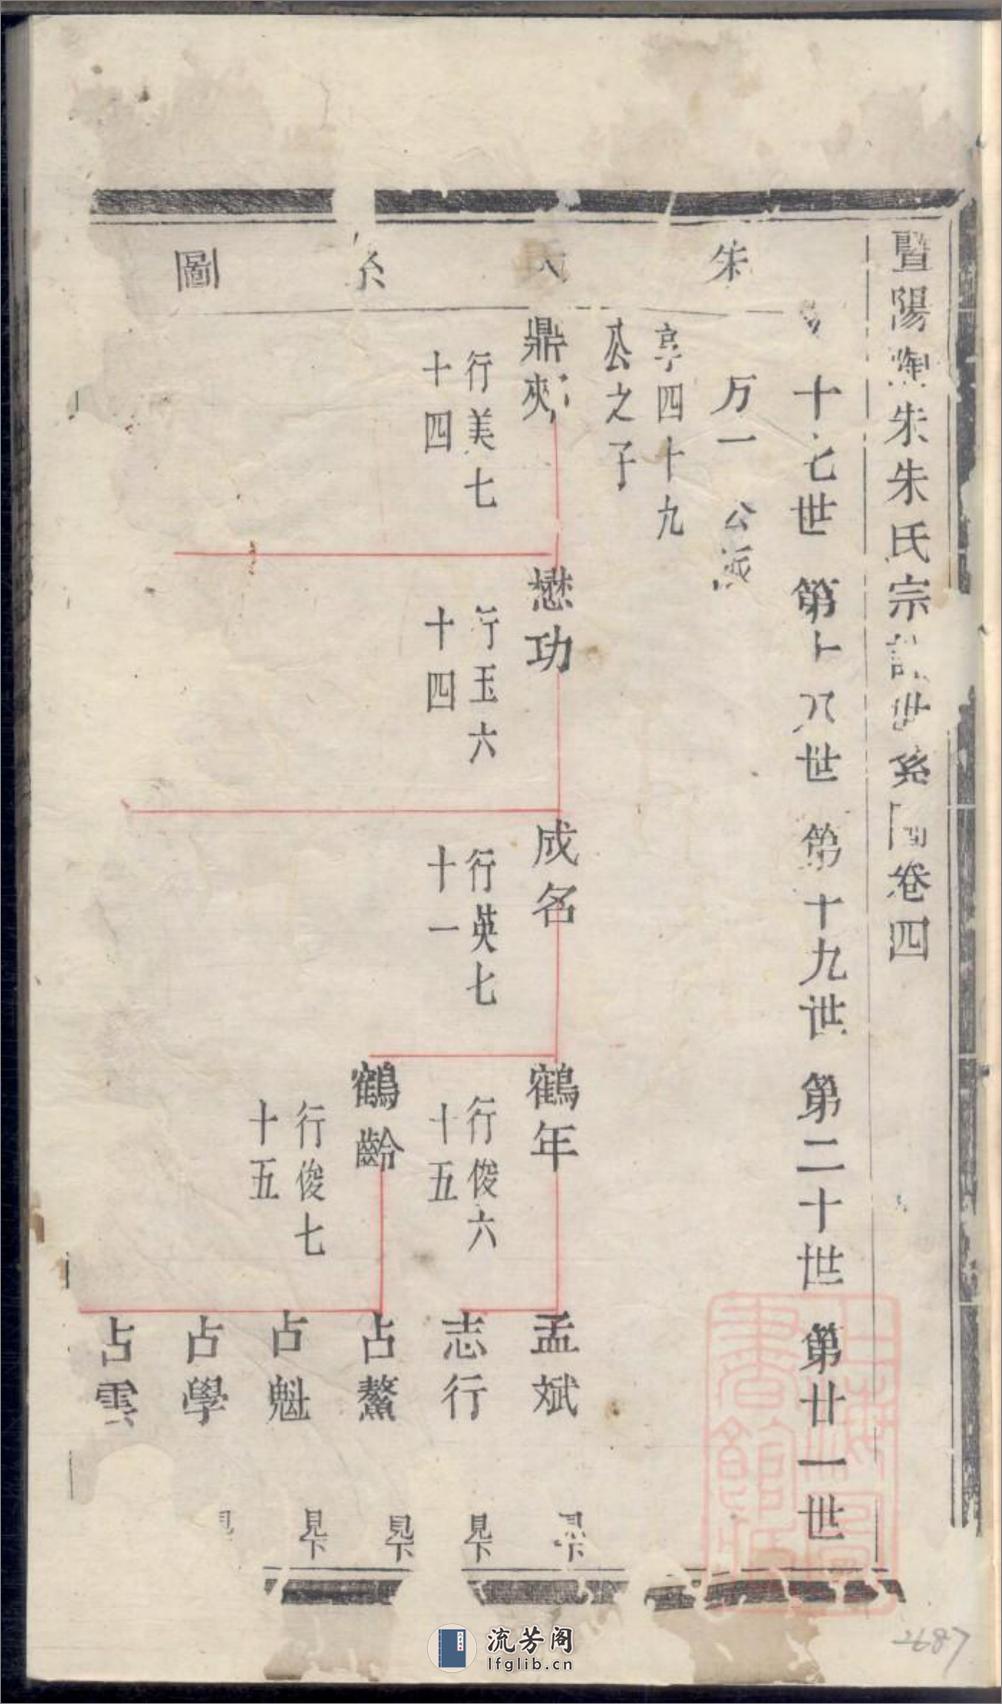 暨陽 朱朱氏宗 世系 卷四
十七世 第十八世 第十九世 第二十世 第廿一世
朱 系圖
万一公派
亨四十九
公之子
鼎夾
行美七
十四
懋功
行玉六
十四
成名
行英七
十一
鶴年
行俊六
十五
鶴齡
行俊七
十五
孟斌
志行
占鰲
占魁
占學
占雲
見下
見下
見下
見下
見
流芳阁
lfglib.cn
2687